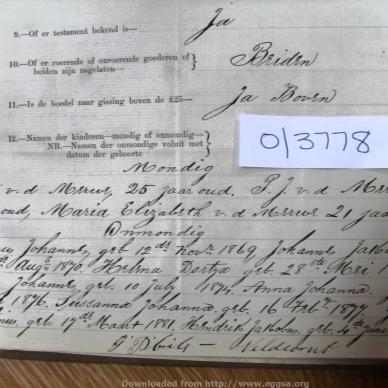 9.—Of er testament bekend is— Ja
10.—Of er roerende of onroerende goederen of beiden zijn nagelaten— } Briden
11.—Is de boedel naar gissing boven de £25— Ja Boven
12.—Namen der kinderen—mondig of onmondig— }
NB.—Namen der onmondige voluit met datum der geboorte
0/3778
Mondig
v. d Merwe, 25 jaar oud. P. J. v. d Mer
oud, Maria Elizabeth v. d Merwe 21 jaar
Onmondig
Johannes, geb 12de Nov. 1869 Johannes Jakob
Aug 1870. Helena geb. 28ste Mei
Johannes, geb. 10 July 1874. Anna Johanna.
1876. Susanna Johanna. geb. 16 Feb. 1877.
geb. 17de Maart 1881. Hendrik Jakobus. geb. 4de June
Downloaded from http://www.eggsa.org